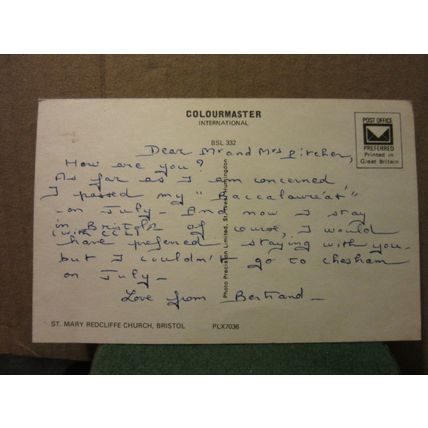 COLOURMASTER
INTERNATIONAL
BSL 332
POST OFFICE
PREFERRED
Printed in
Great Britain
Dear Mr and Mrs Pitcher,
How are you?
As far as I am concerned
I passed my "Baccalauréat"
- on July - And now I stay
in Bristol
(with CCL) of course, I would
have prefered staying with you -
but I couldn't go to chesham
on July -
Love from Bertrand -
Photo Precision Limited, St. Ives, Huntingdon
ST. MARY REDCLIFFE CHURCH, BRISTOL
PLX7036